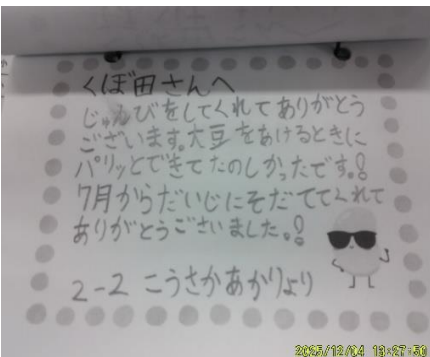 くぼ田さんへ
じゅんびをしてくれてありがとう
ございます。大豆をあけるときに
パリッとできてたのしかったです。!
7月からだいじにそだててくれて
ありがとうございました。!
2-2 こうさかあかりより
2025/12/04 13:27:50